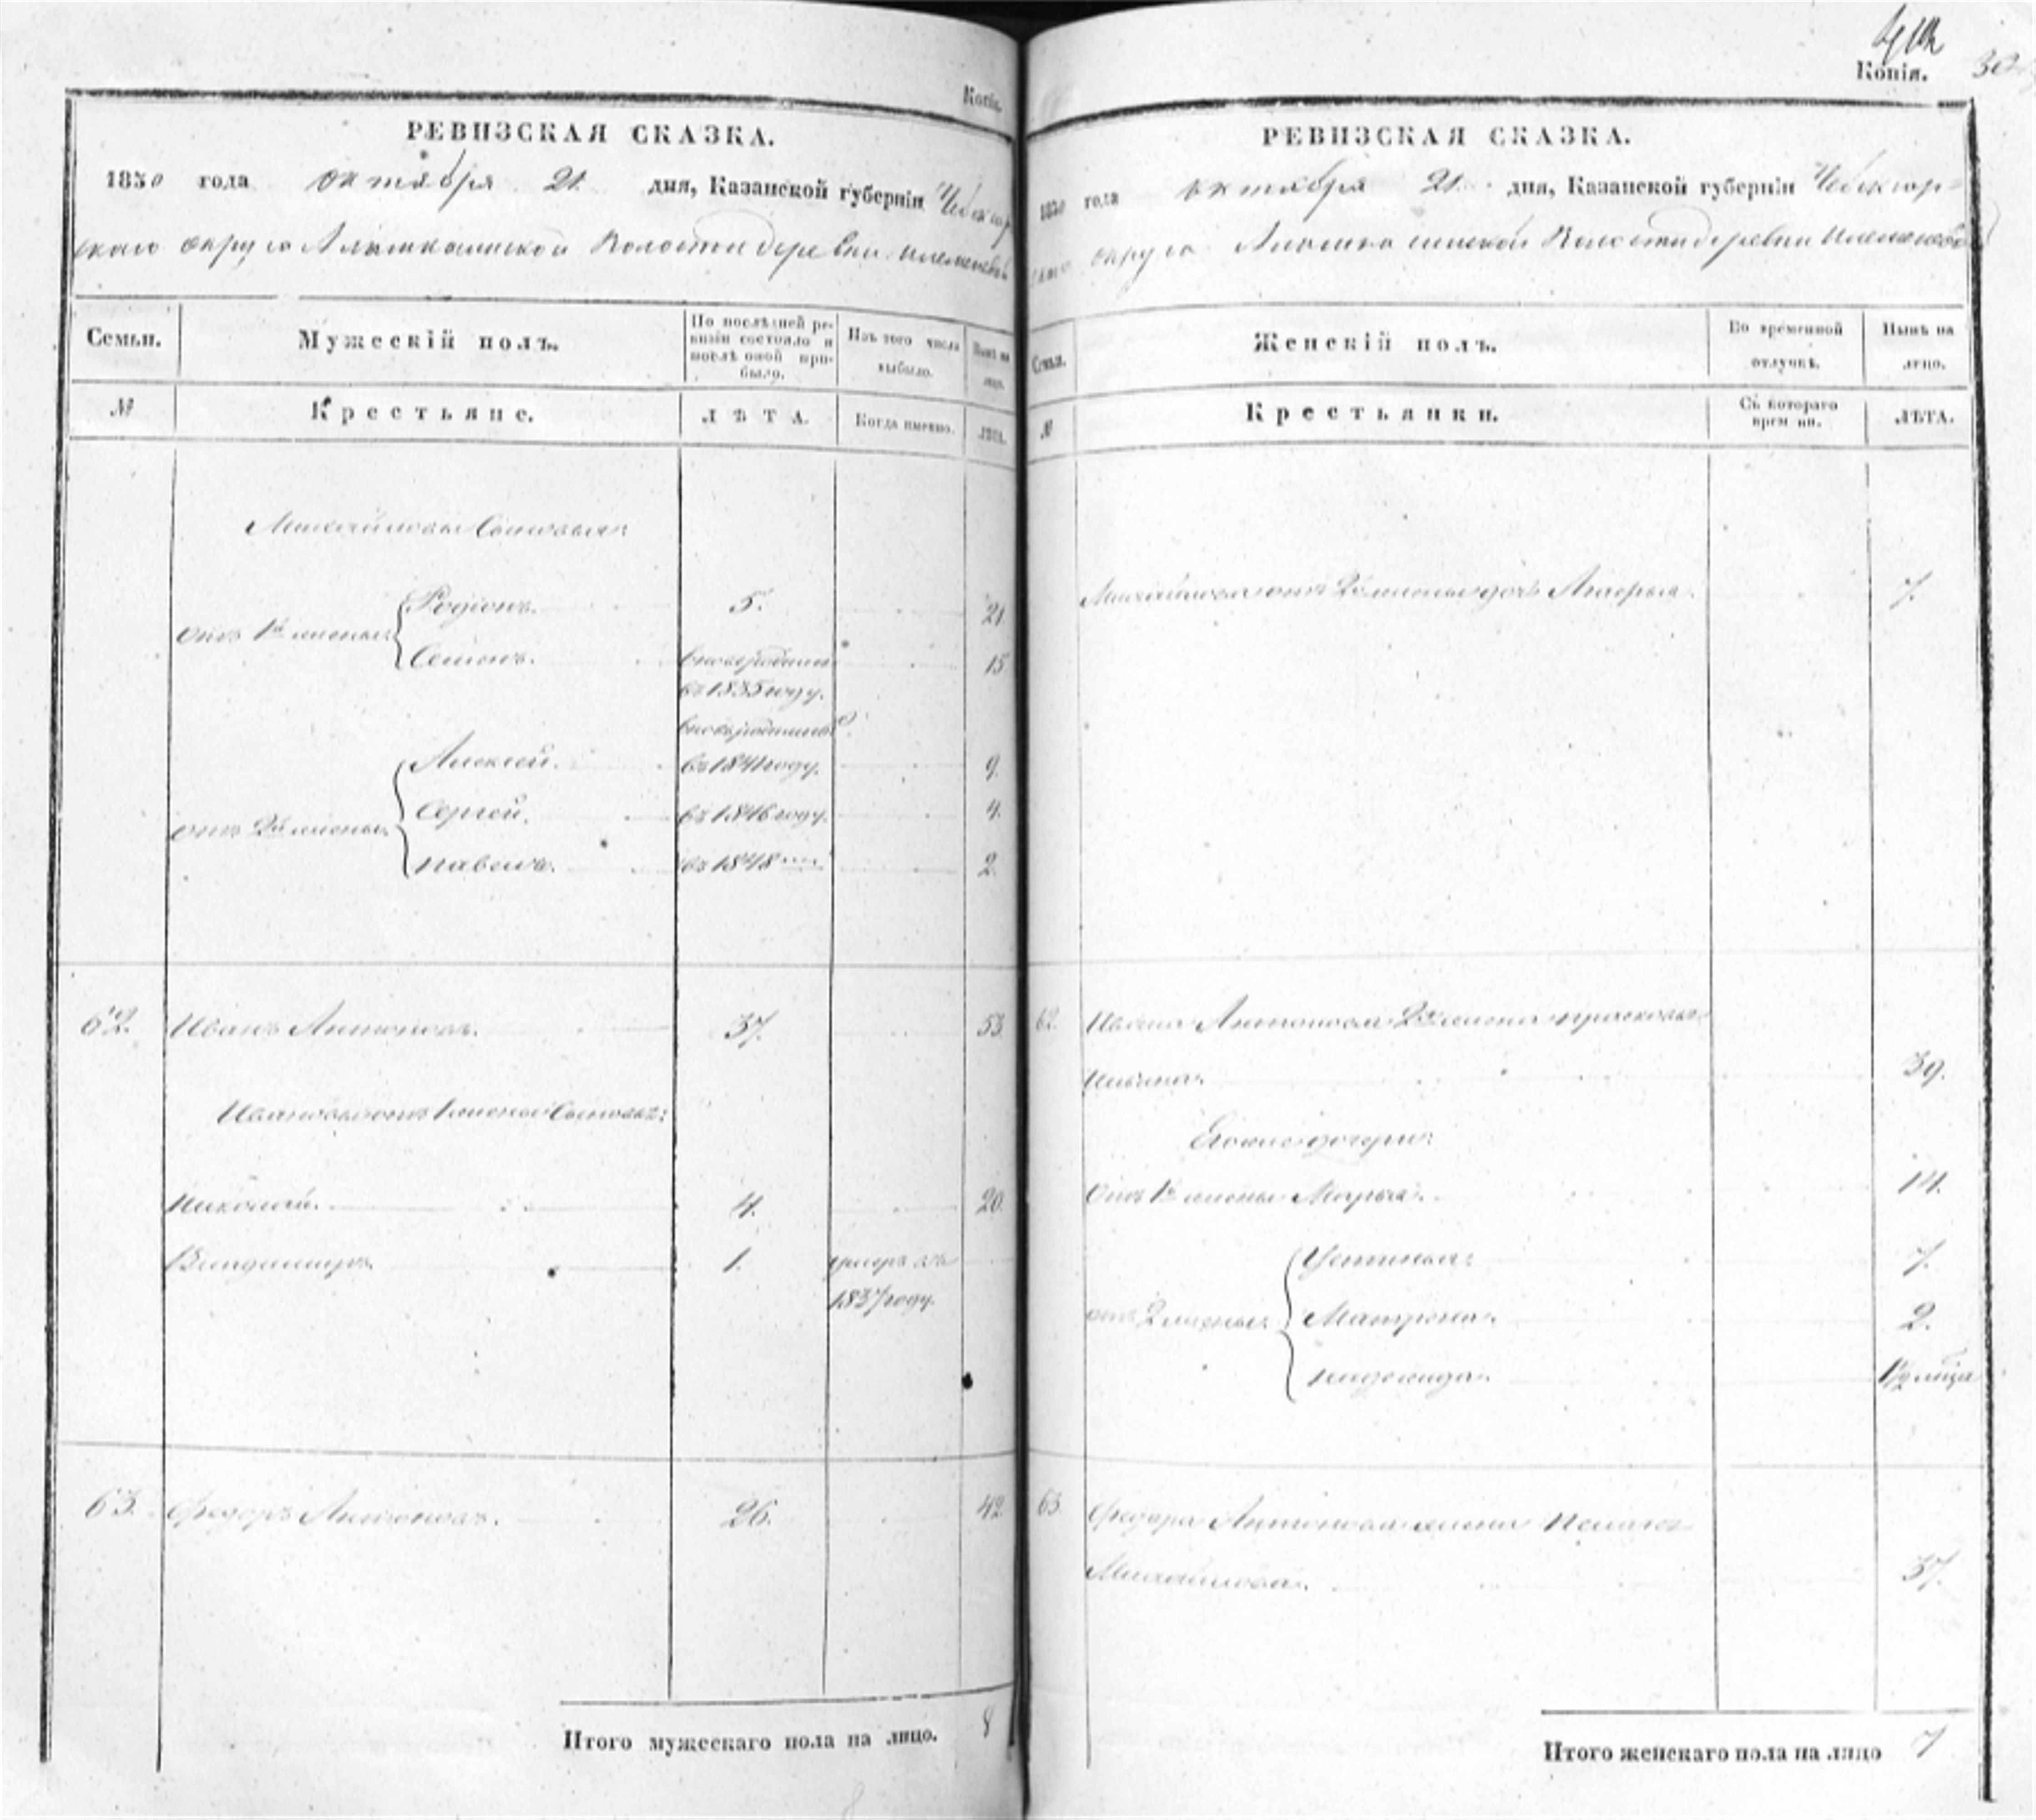 Копія.
РЕВИЗСКАЯ СКАЗКА.
1850 года октября 21 дня, Казанской губерніи Чебоксар
скаго округа Алымкасинской Волости деревни
Семьи.
Мужескій полъ.
По послѣдней ре-
визіи состояло и
послѣ оной при-
было.
Изъ того числа
выбыло.
Нынѣ на
лицо.
№
Крестьяне.
ЛѢТА.
Когда имянно.
ЛѢТА.
Михайловы Сыновья:
отъ 1й жены:
Родіонъ. 5. 21.
Семенъ. вновьрожден. 15
въ 1835 году.
вновьрожденный
Алексей. въ 1841 году. 9.
отъ 2й жены.
Сергей. въ 1846 году. 4.
Павелъ. въ 1848 2.
62. Иванъ Антоновъ. 37. 53.
Ивановы отъ 1 жены Сыновья:
Николай. 4. 20.
Владимиръ. 1. умеръ въ
1837 году.
63. Федоръ Антоновъ. 26. 42.
Итого мужескаго пола на лицо. 8
Копія. 30
РЕВИЗСКАЯ СКАЗКА.
1850 года октября 21 дня, Казанской губерніи Чебоксар=
скаго округа Волости деревни
Семьи.
Женскій полъ.
Во временной
отлучкѣ.
Нынѣ на
лицо.
№
Крестьянки.
Съ котораго
врем ни.
ЛѢТА.
Михайлова отъ 2й жены дочь 7.
62. Ивана Антонова 2я жена Прасковья
39.
Егоже дочери:
Отъ 1й жены Марья. 14.
отъ 2 жены:
Устинья: 7.
Матрена. 2.
1/2 мѣца
63. Федора Антонова жена Пелагея
Михайлова. 37.
Итого женскаго пола на лицо 7